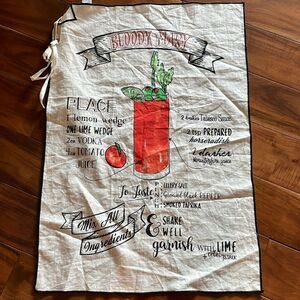 BLOODY MARY
PLACE
1 lemon wedge
ONE LIME WEDGE
2oz VODKA
4oz TOMATO
JUICE
2 dashes Tabasco Sauce
2 tsp PREPARED
horseradish
1 dashes
Worcestershire sauce
To Taste
CELERY SALT
Ground Black PEPPER
SMOKED PAPRIKA
Mix All
Ingredients
& SHAKE
WELL
garnish WITH LIME
+ CELERY STALK